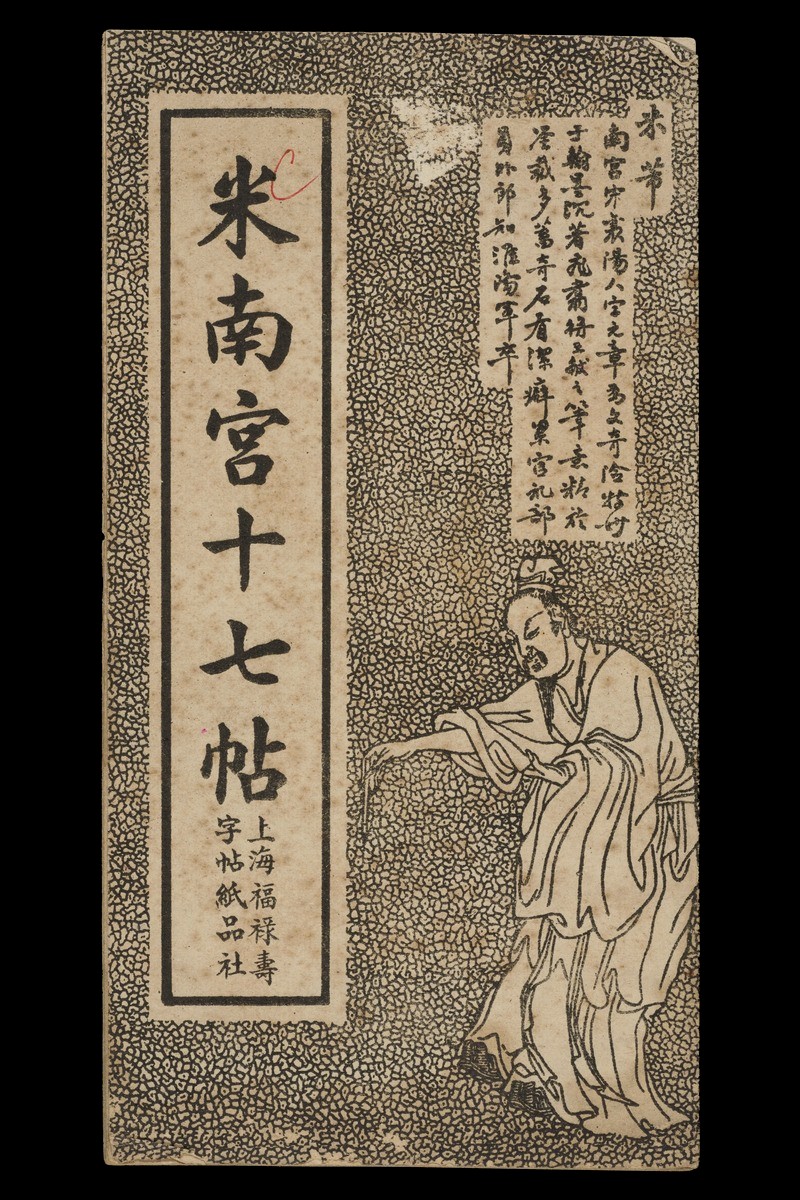 米芾
南宮宋襄陽人字元章為文奇險特妙
于翰墨沉著飛翥得王献之筆意精於
鉴裁多蓄奇石有潔癖累官礼部
員外郎知淮陽軍卒
米南宮十七帖
上海福祿壽
字帖紙品社